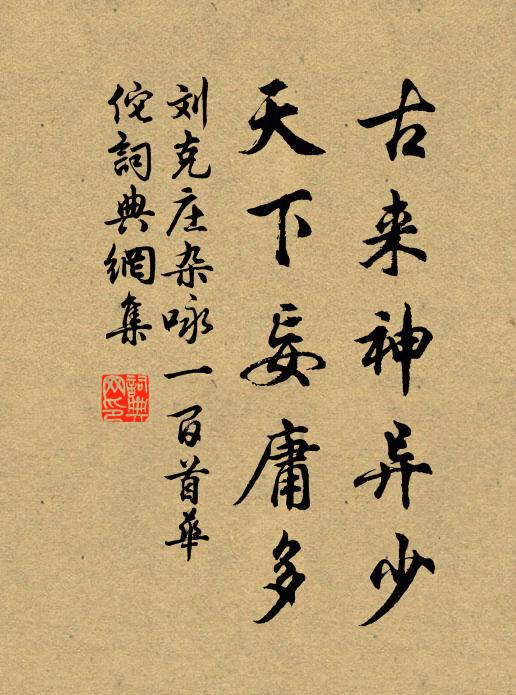 古来神异少
天下妄庸多
刘克庄杂咏一百首华
佗詞典網集
詞典網印